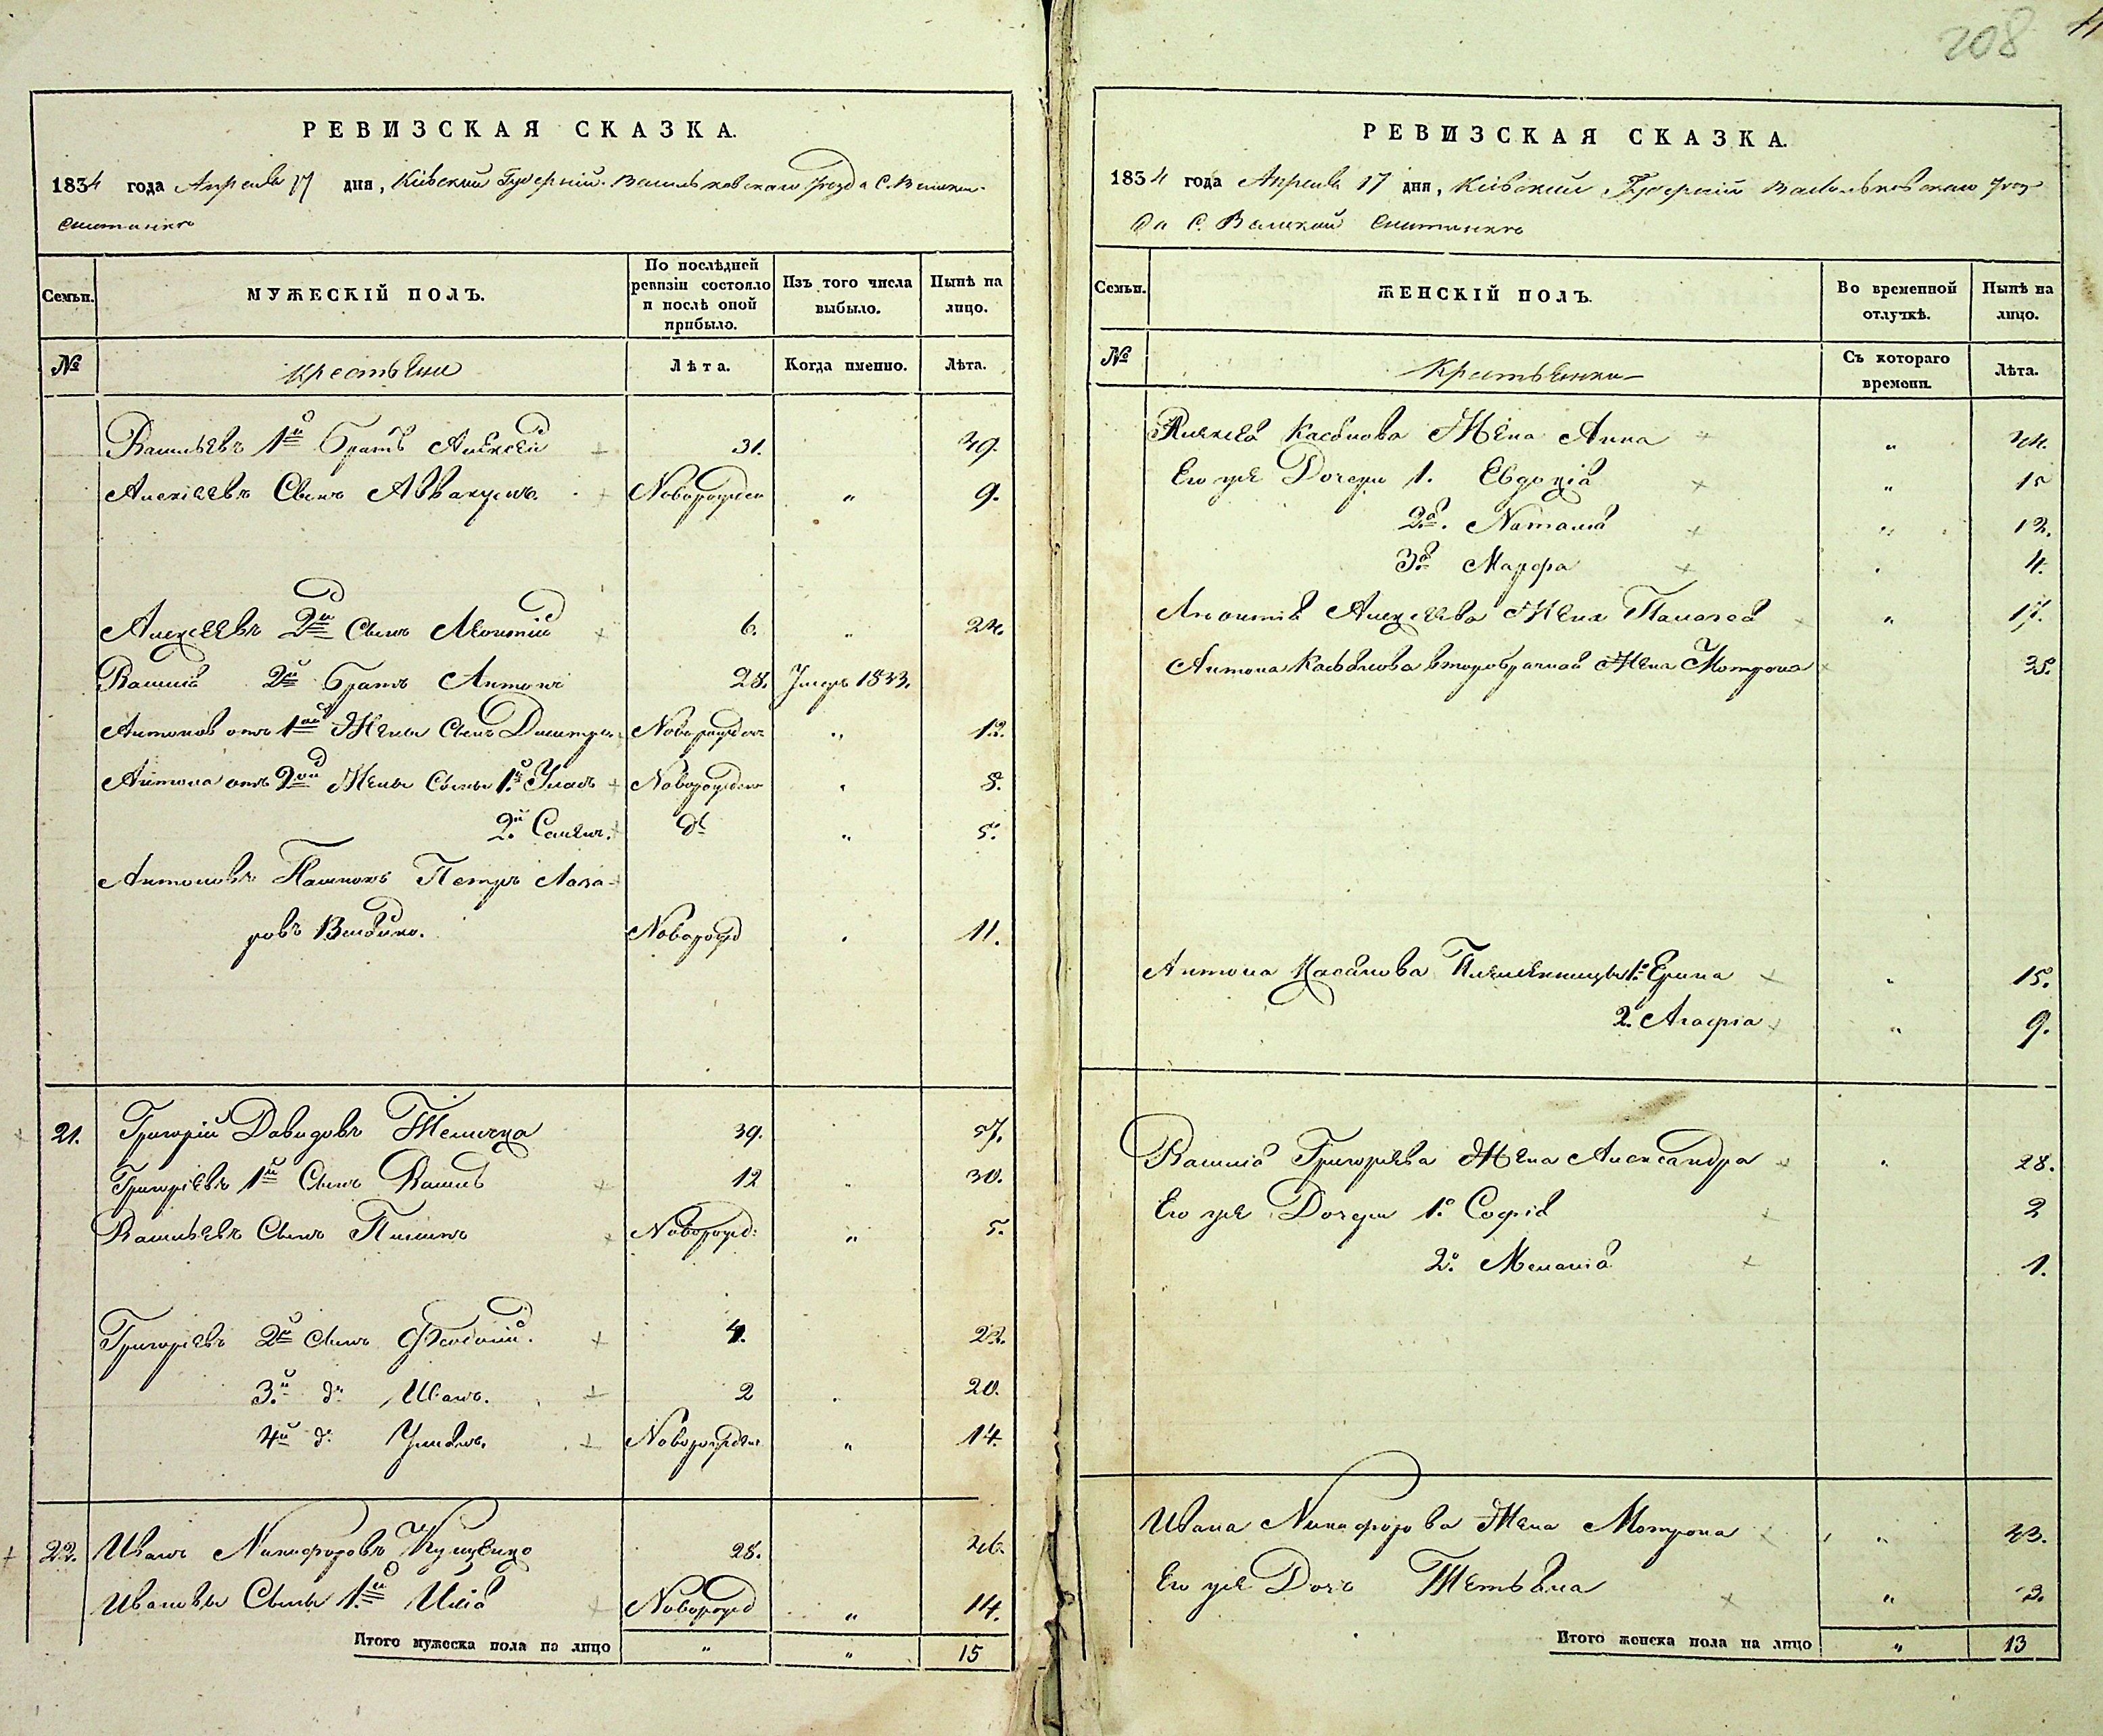 208
РЕВИЗСКАЯ СКАЗКА.
1834 года Апреля 17 дня, Кіевской Губерніи Васильковского уезда С. Великои
Снитинки
Семьи.
МУЖЕСКІЙ ПОЛЪ.
По послѣдней ревизіи состояло и послѣ оной прибыло.
Изъ того числа выбыло.
Нынѣ на лицо.
№
Крестьяне
Лѣта.
Когда именно.
Лѣта.
Васильевъ 1й Братъ Алексей 31. 49.
Алексеевъ Сынъ Аввакумъ Новорожден „ 9.
Алексеевъ 2й Сынъ Леонтий 6. „ 24.
Василия 2й Братъ Антонъ 28. Умеръ 1833.
Антонов отъ 1ой Жены Сынъ Дмитрий Новорожденъ „ 12.
Антона отъ 2ой Жены Сыны 1й Уласъ Новорожден „ 8.
2й Семенъ. до „ 5.
Антоновъ Петръ Лаза-
ровъ Новорожд 11.
21. Григорій Давидовъ 39. 57.
Григорьевъ 1й Сынъ Василь 12 „ 30.
Васильевъ Сынъ Пилипъ Новорожд: „ 5.
Григорьевъ 2й Сынъ Феодосий. 4. 22.
3й до Иванъ. 2 20.
4й до Новорожден „ 14.
22. Иванъ Никифоровъ 28. 46.
Ивановы Сыны 1й Илія Новорожд „ 14.
Итого мужеска пола на лицо „ „ 15
РЕВИЗСКАЯ СКАЗКА.
1834 года Апреля 17 дня, Кіевской Губерніи Васильковского уез-
да С. Великой Снитинки
Семьи.
ЖЕНСКІЙ ПОЛЪ.
Во временной отлучкѣ.
Нынѣ на лицо.
№
Крестьянки
Съ котораго времени.
Лѣта.
Алексея Касьянова Жена Анна „ 44.
Его же Дочери 1. Евдокія „ 15
2я. Наталія „ 12.
3я Марфа 4.
Леонтія Алексеева Жена Палагея „ 17.
Антона Касьянова второбрачная Жена Мотрона 35.
Антона Касьянова Племенницы 1я Ерина „ 15.
2. Агафія „ 9.
Василия Григорьева Жена Александра „ 28.
Его же Дочери 1я Софія 2
2я Меланія 1.
Ивана Никифорова Жена Мотрона „ 43.
Его же Дочь Тетьяна „ 2.
Итого женска пола на лицо „ 13